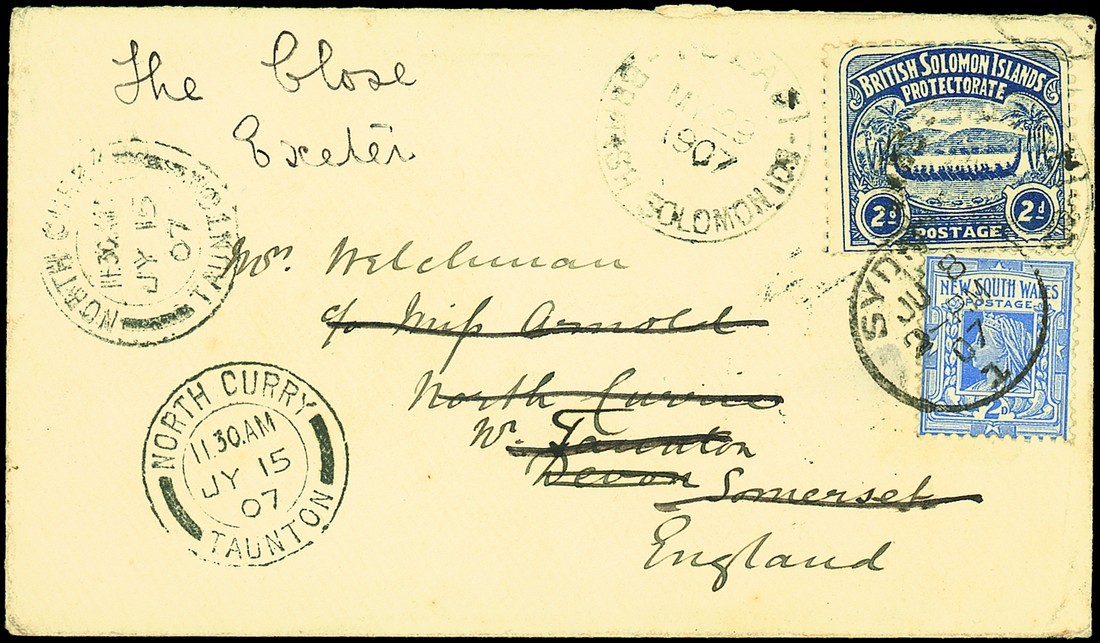 The Close
Exeter
BRITISH SOLOMON ISLANDS
PROTECTORATE
2d 2d
POSTAGE
1907
SOLOMON IDS
NEW SOUTH WALES
POSTAGE
2D
SYDN
JU 8
2 PM
07
1
NORTH CURRY
11.30.AM
JY 15
07
TAUNTON
Mrs. Welchman
c/o Miss Arnold
North Currie
Nr. Taunton
Devon Somerset
England
NORTH CURRY
11.30.AM
JY 15
07
TAUNTON